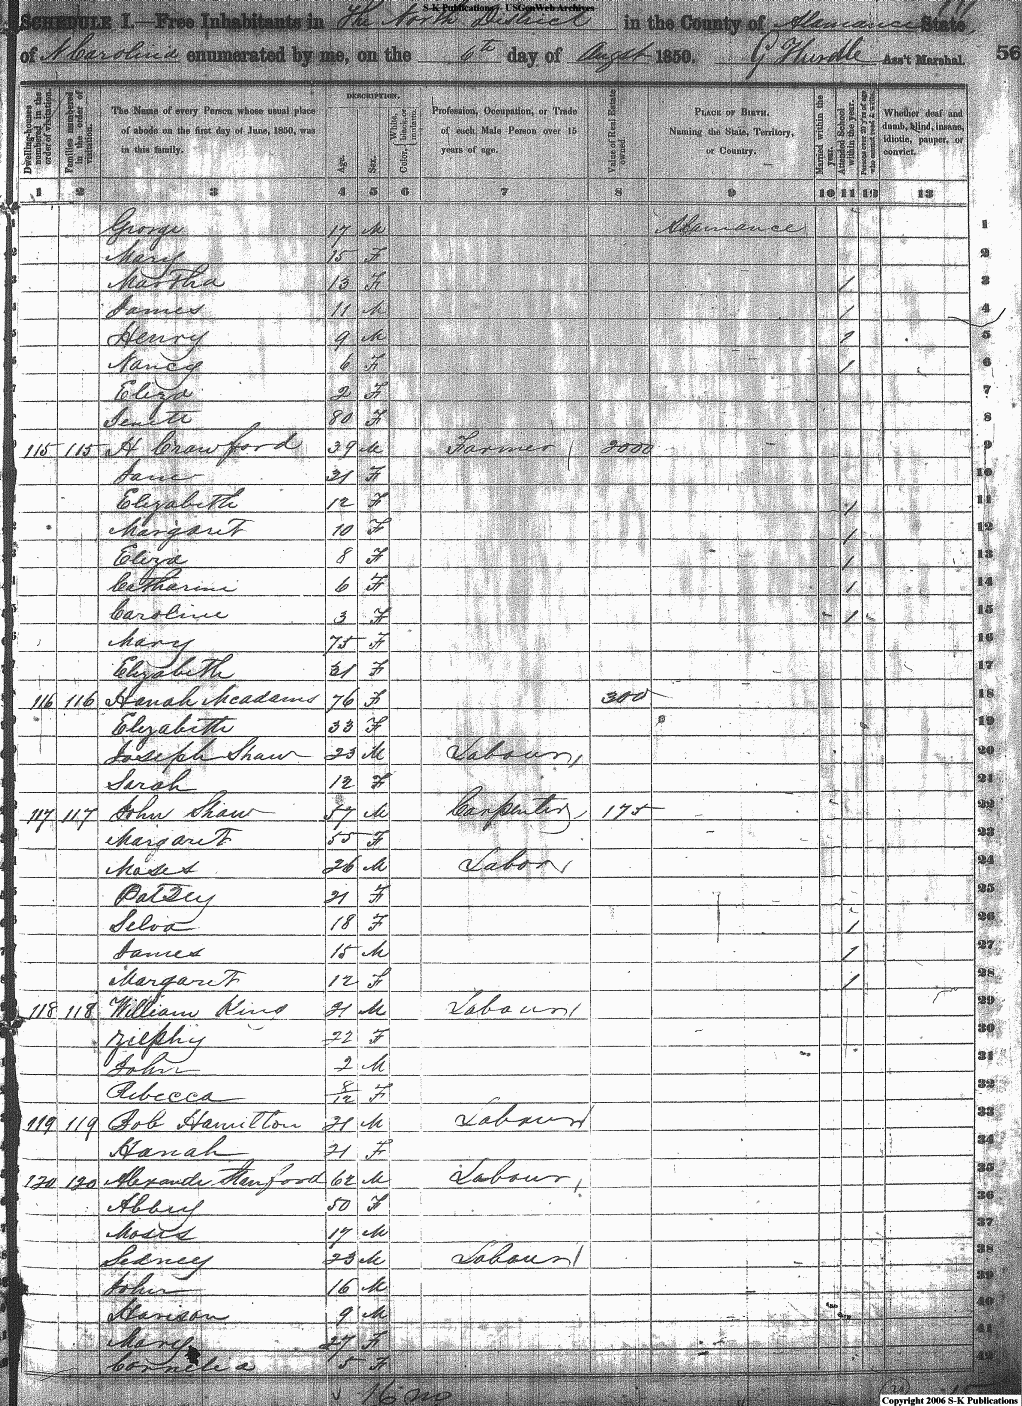 S-K Publications - USGenWeb Archives
SCHEDULE I.—Free Inhabitants in The North District in the County of Alamance State
of N Carolina enumerated by me, on the 6th day of August 1850. G Hurdle Ass't Marshal. 56
Dwelling-houses numbered in the order of visitation.
Families numbered in the order of visitation.
The Name of every Person whose usual place of abode on the first day of June, 1850, was in this family.
DESCRIPTION.
Age.
Sex.
Color, White, black, or mulatto.
Profession, Occupation, or Trade of each Male Person over 15 years of age.
Value of Real Estate owned
PLACE OF BIRTH. Naming the State, Territory, or Country.
Married within the year.
Attended School within the year.
Persons over 20 y'rs of age who cannot read & write.
Whether deaf and dumb, blind, insane, idiotic, pauper, or convict.
1 2 3 4 5 6 7 8 9 10 11 12 13
George 17 M Alamance 1
Mary 15 F 2
Martha 13 F 1 3
James 11 M 1 4
Henry 9 M 1 5
Nancy 6 F 1 6
Eliza 2 F 7
80 F 8
115 115 H Crawford 39 M Farmer 2000 9
Jane 31 F 10
Elizabeth 12 F 1 11
Margaret 10 F 1 12
Eliza 8 F 1 13
Catharine 6 F 1 14
Caroline 3 F 1 15
Mary 75 F 16
Elizabeth 31 F 17
116 116 Hanah Mcadams 76 F 300 18
Elizabeth 33 F 19
Joseph Shaw 23 M Labour 20
Sarah 12 F 21
117 117 John Shaw 57 M Carpenter 175 22
Margaret 55 F 23
Moses 26 M Labor 24
Patsey 21 F 25
Selva 18 F 1 26
James 15 M 1 27
Margaret 12 F 1 28
118 118 William King 21 M Labour 29
Zilphy 22 F 30
John 2 M 31
Rebecca 8/12 F 32
119 119 Bob Hamilton 21 M Labour 33
Hanah 21 F 34
120 120 Alexander Stanfoord 62 M Labour 35
Abby 50 F 36
Moses 17 M 37
Sedney 23 M Labour 38
John 16 M 39
Harison 9 M 40
Mary 27 F 41
Cornelia 5 F 42
16 mo
Copyright 2006 S-K Publications